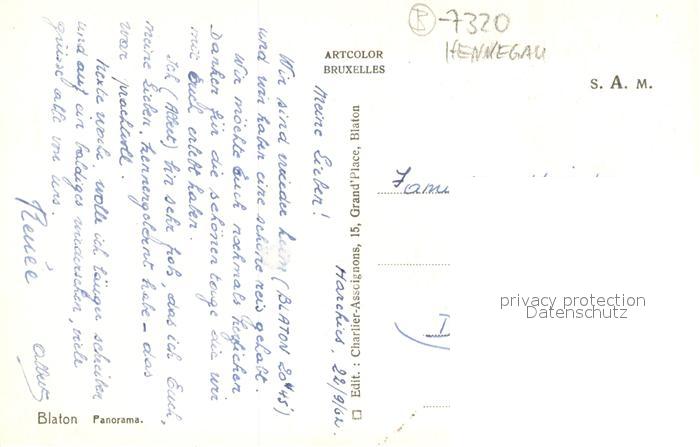 B-7320
HENNEGAU
ARTCOLOR
BRUXELLES
S. A. M.
Harchies, 22/9/62.
Meine Lieben!
Wir sind wieder heim (BLATON 20 H 45')
und wir haben eine schöne reis gehabt.
Wir möchte Euch nochmals herzlicher
Danken für die schönen tage die wir
mit Euch erlebt haben.
Ich (Albert) bin sehr froh, das ich Euch,
meine Lieben, kennengelernt habe - das
war prachtvoll.
wolle ich länger schreiben
und auf ein baldiges wiedersehen, viele
grüsse alle von uns.
Renée
Albert
Edit. : Charlier-Assoignons, 15, Grand'Place, Blaton
Fami
privacy protection
Datenschutz
Blaton Panorama.